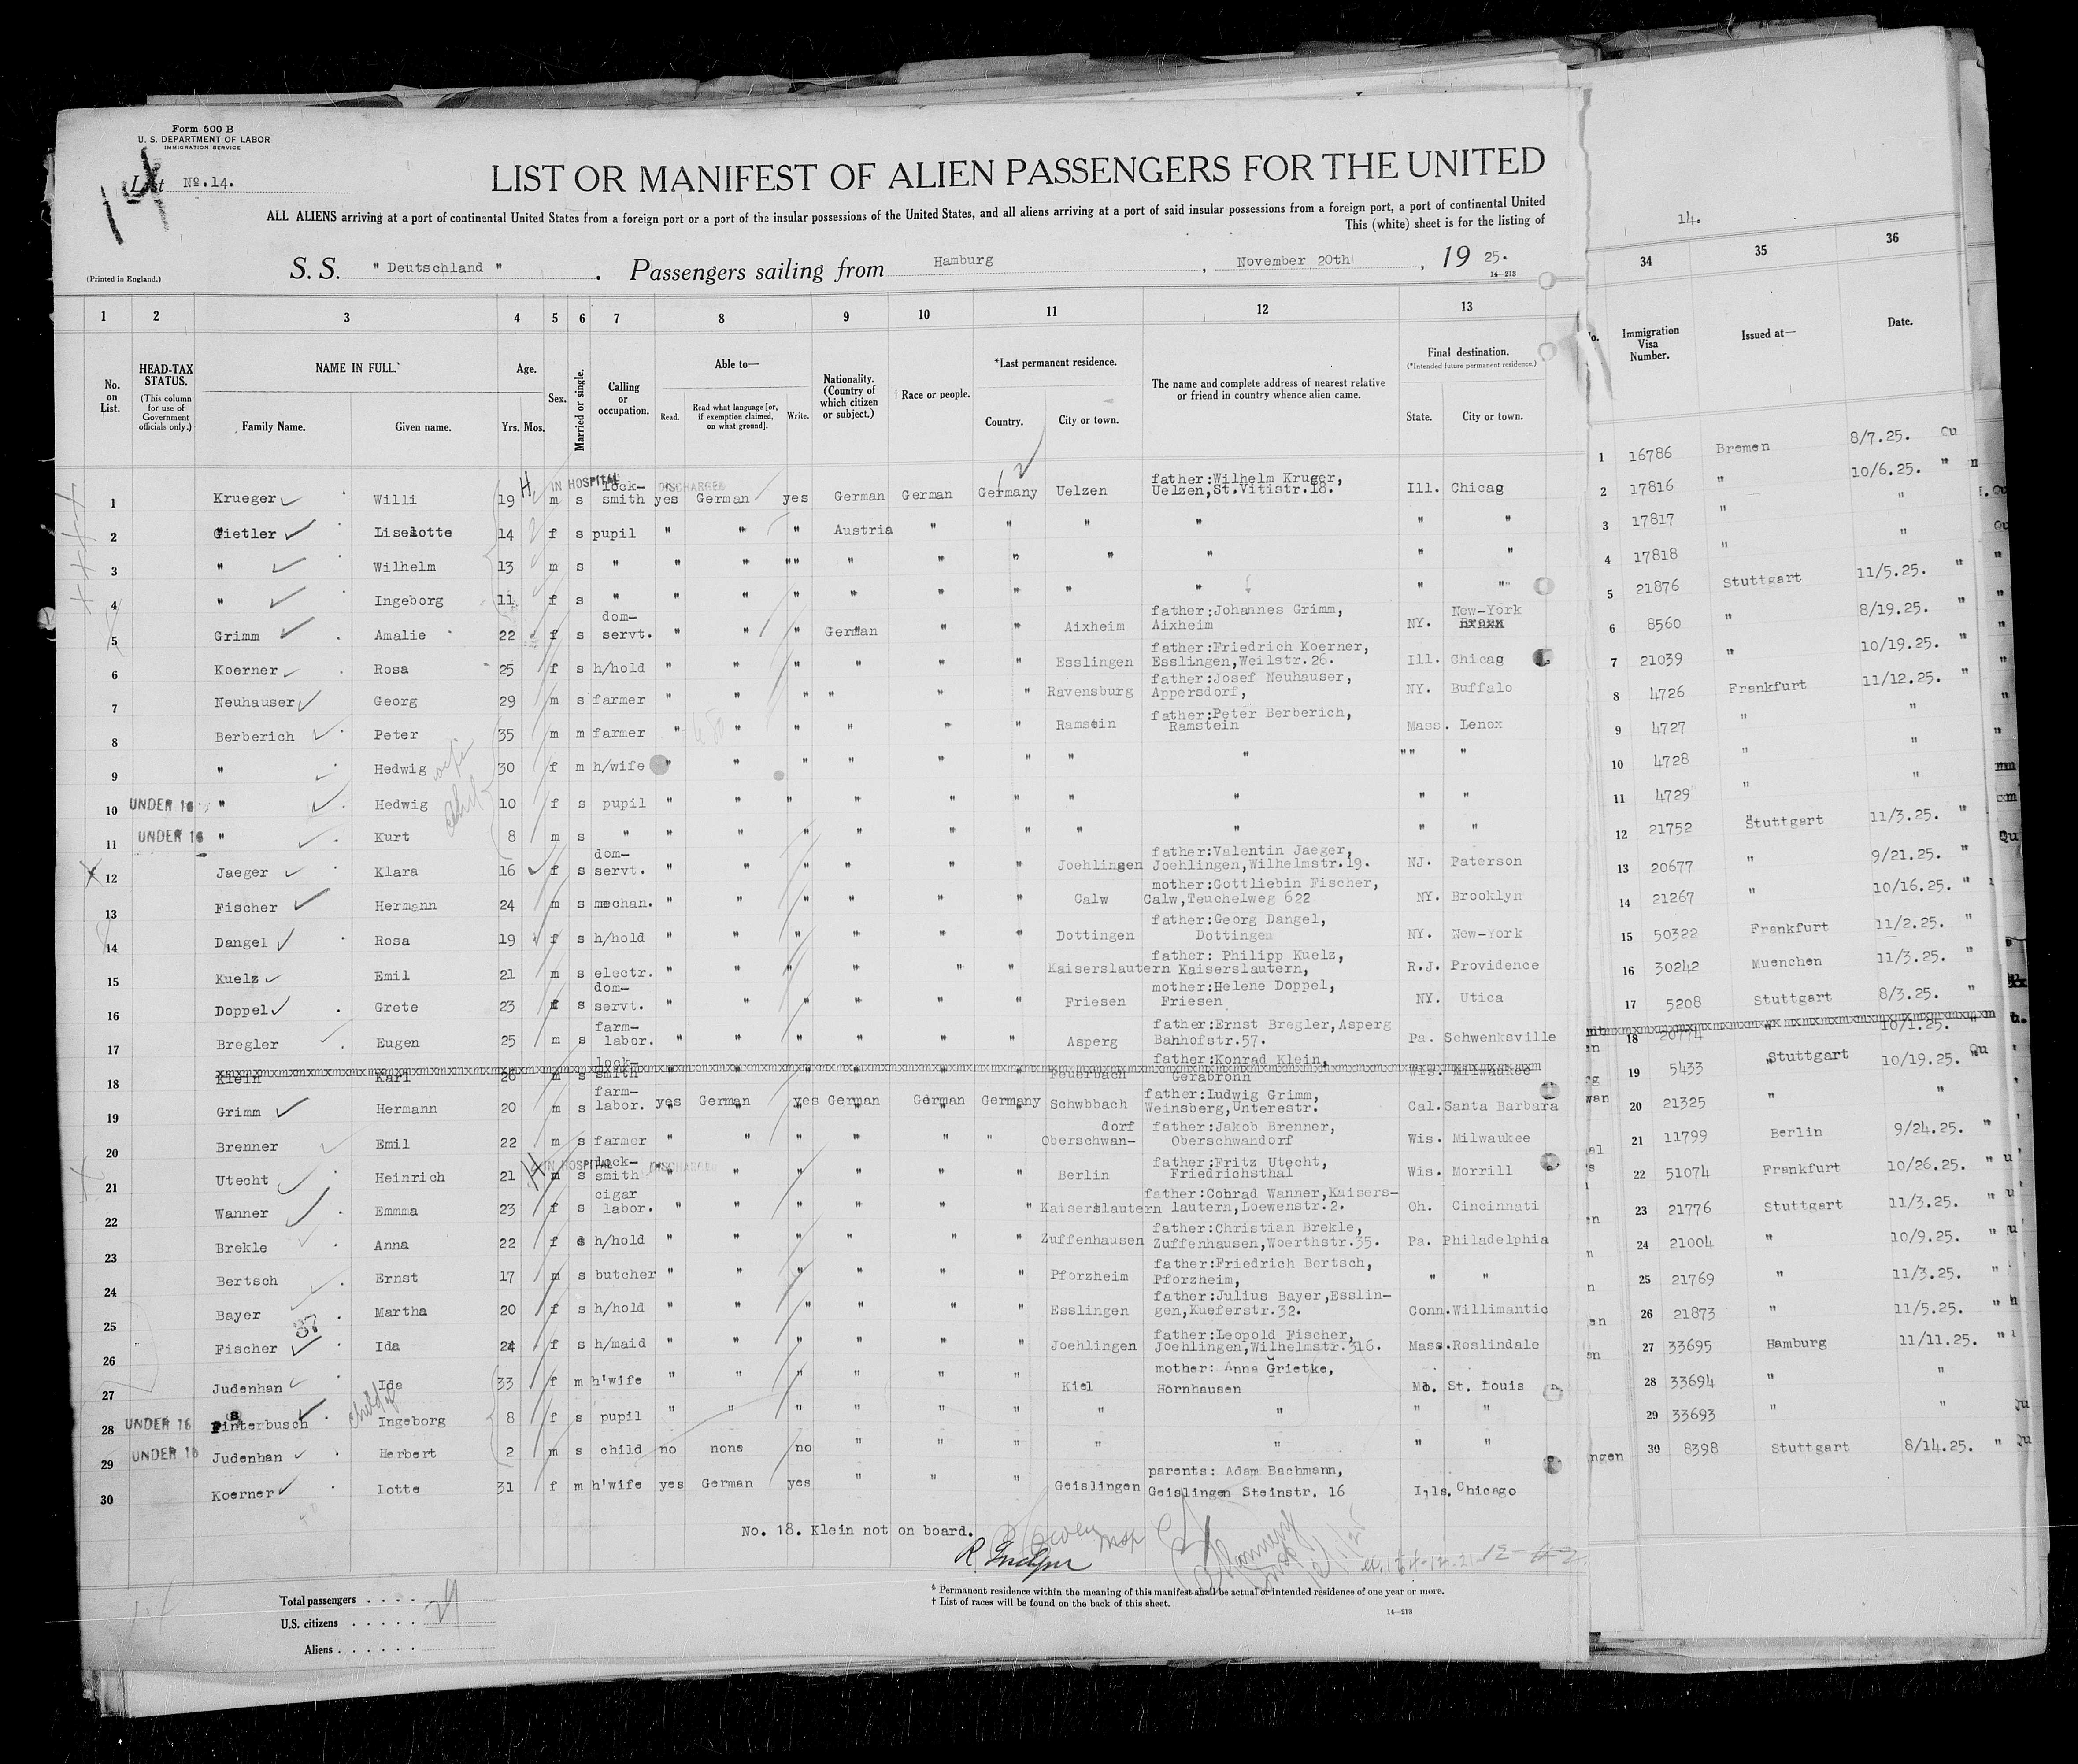 Form 500 B
U. S. DEPARTMENT OF LABOR
IMMIGRATION SERVICE
List No.14.
14
LIST OR MANIFEST OF ALIEN PASSENGERS FOR THE UNITED
ALL ALIENS arriving at a port of continental United States from a foreign port or a port of the insular possessions of the United States, and all aliens arriving at a port of said insular possessions from a foreign port, a port of continental United
This (white) sheet is for the listing of
(Printed in England.)
S. S. " Deutschland " . Passengers sailing from Hamburg , November 20th , 19 25.
14—213
1 2 3 4 5 6 7 8 9 10 11 12 13
No. on List.
HEAD-TAX STATUS. (This column for use of Government officials only.)
NAME IN FULL.
Family Name. Given name.
Age. Yrs. Mos.
Sex.
Married or single.
Calling or occupation.
Able to—
Read. Read what language [or, if exemption claimed, on what ground]. Write.
Nationality. (Country of which citizen or subject.)
† Race or people.
*Last permanent residence.
Country. City or town.
The name and complete address of nearest relative or friend in country whence alien came.
Final destination. (*Intended future permanent residence.)
State. City or town.
1 Krueger Willi 19 H IN HOSPITAL DISCHARGED m s lock-smith yes German yes German German Germany Uelzen father:Wilhelm Kruger, Uelzen,St.Vitistr.18. Ill. Chicag
2 Gietler Liselotte 14 f s pupil " " " Austria " " " " " "
3 " Wilhelm 13 m s " " " "" " " " " " " "
4 " Ingeborg 11 f s " " " " " " " " " " "
5 Grimm Amalie 22 f s dom-servt. " " " German " " Aixheim father:Johannes Grimm, Aixheim NY. New-York
6 Koerner Rosa 25 f s h/hold " " " " " " Esslingen father:Friedrich Koerner, Esslingen,Weilstr.26. Ill. Chicag
7 Neuhauser Georg 29 m s farmer " " " " " " Ravensburg father:Josef Neuhauser, Appersdorf, NY. Buffalo
8 Berberich Peter 35 m m farmer " " " " " " Ramstein father:Peter Berberich, Ramstein Mass. Lenox
9 " Hedwig wife 30 f m h/wife " " " " " " " " "" "
10 UNDER 16 " Hedwig child 10 f s pupil " " " " " " " " " "
11 UNDER 16 " Kurt 8 m s " " " " " " " " " " "
12 Jaeger Klara 16 f s dom-servt. " " " " " " Joehlingen father:Valentin Jaeger, Joehlingen,Wilhelmstr.19. NJ. Paterson
13 Fischer Hermann 24 m s mechan. " " " " " " Calw mother:Gottliebin Fischer, Calw,Teuchelweg 622 NY. Brooklyn
14 Dangel Rosa 19 f s h/hold " " " " " " Dottingen father:Georg Dangel, Dottingen NY. New-York
15 Kuelz Emil 21 m s electr. " " " " " " Kaiserslautern father: Philipp Kuelz, Kaiserslautern, R.J. Providence
16 Doppel Grete 23 f s dom-servt. " " " " " " Friesen mother:Helene Doppel, Friesen NY. Utica
17 Bregler Eugen 25 m s farm-labor. " " " " " " Asperg father:Ernst Bregler,Asperg Bahhofstr.57. Pa. Schwenksville
18 Klein Karl 26 m s lock-smith " " " " " " Feuerbach father:Konrad Klein, Gerabronn Wis. Milwaukee
19 Grimm Hermann 20 m s farm-labor. yes German yes German German Germany Schwbbach father:Ludwig Grimm, Weinsberg,Unterestr. Cal. Santa Barbara
20 Brenner Emil 22 m s farmer " " " " " " Oberschwan-dorf father:Jakob Brenner, Oberschwandorf Wis. Milwaukee
21 Utecht Heinrich 21 H IN HOSPITAL DISCHARGED m s lock-smith " " " " " " Berlin father:Fritz Utecht, Friedrichsthal Wis. Morrill
22 Wanner Emmma 23 f s cigar labor. " " " " " " Kaiserslautern father:Cohrad Wanner,Kaisers-lautern,Loewenstr.2. Oh. Cincinnati
23 Brekle Anna 22 f d h/hold " " " " " " Zuffenhausen father:Christian Brekle, Zuffenhausen,Woerthstr.35. Pa. Philadelphia
24 Bertsch Ernst 17 m s butcher " " " " " " Pforzheim father:Friedrich Bertsch, Pforzheim, " "
25 Bayer Martha 20 f s h/hold " " " " " " Esslingen father:Julius Bayer,Esslin-gen,Kueferstr.32. Conn. Willimantic
37
26 Fischer Ida 24 f s h/maid " " " " " " Joehlingen father:Leopold Fischer, Joehlingen,Wilhelmstr.316. Mass. Roslindale
27 Judenhan Ida 33 f m h'wife " " " " " " Kiel mother: Anna Grietke, Hornhausen Mo. St. Louis
28 UNDER 16 interbusch child Ingeborg 8 f s pupil " " " " " " " " " "
29 UNDER 16 Judenhan Herbert 2 m s child no none no " " " " " " "
30 Koerner Lotte 31 f m h'wife yes German yes " " " Geislingen parents: Adam Bachmann, Geislingen Steinstr. 16 Ills. Chicago
No. 18. Klein not on board.
Total passengers . . . . 29
U.S. citizens . . . . .
Aliens . . . . . .
* Permanent residence within the meaning of this manifest shall be actual or intended residence of one year or more.
† List of races will be found on the back of this sheet.
14—213
14.
34 35 36
Immigration Visa Number. Issued at— Date.
1 16786 Bremen 8/7.25. Qu
2 17816 " 10/6.25. "
3 17817 " "
4 17818 " "
5 21876 Stuttgart 11/5.25. "
6 8560 " 8/19.25. "
7 21039 " 10/19.25. "
8 4726 Frankfurt 11/12.25. "
9 4727 " "
10 4728 " "
11 4729 " "
12 21752 Stuttgart 11/3.25. "
13 20677 " 9/21.25. "
14 21267 " 10/16.25. "
15 50322 Frankfurt 11/2.25. "
16 30242 Muenchen 11/3.25. "
17 5208 Stuttgart 8/3.25. "
18 20774 " 10/1.25. "
19 5433 Stuttgart 10/19.25. Qu
20 21325 " "
21 11799 Berlin 9/24.25. "
22 51074 Frankfurt 10/26.25. "
23 21776 Stuttgart 11/3.25. "
24 21004 " 10/9.25. "
25 21769 " 11/3.25. "
26 21873 " 11/5.25. "
27 33695 Hamburg 11/11.25. "
28 33694 " "
29 33693 " "
30 8398 Stuttgart 8/14.25. "